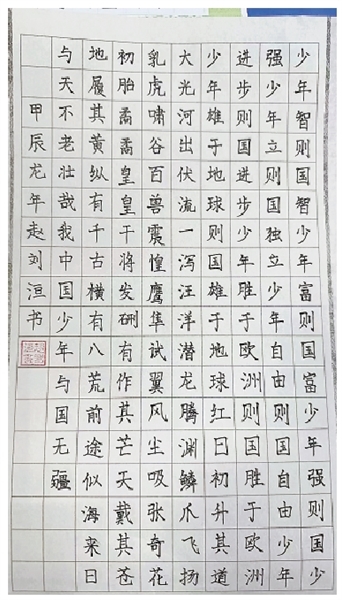 少年智则国智少年富则国富少年强则国少
强少年立则国独立少年自由则国自由少年
进步则国进步少年胜于欧洲则国胜于欧洲
少年雄于地球则国雄于地球红日初升其道
大光河出伏流一泻汪洋潜龙腾渊鳞爪飞扬
乳虎啸谷百兽震惶鹰隼试翼风尘吸张奇花
初胎矞矞皇皇干将发硎有作其芒天戴其苍
地履其黄纵有千古横有八荒前途似海来日
与天不老壮哉我中国少年与国无疆
甲辰龙年赵刘洹书